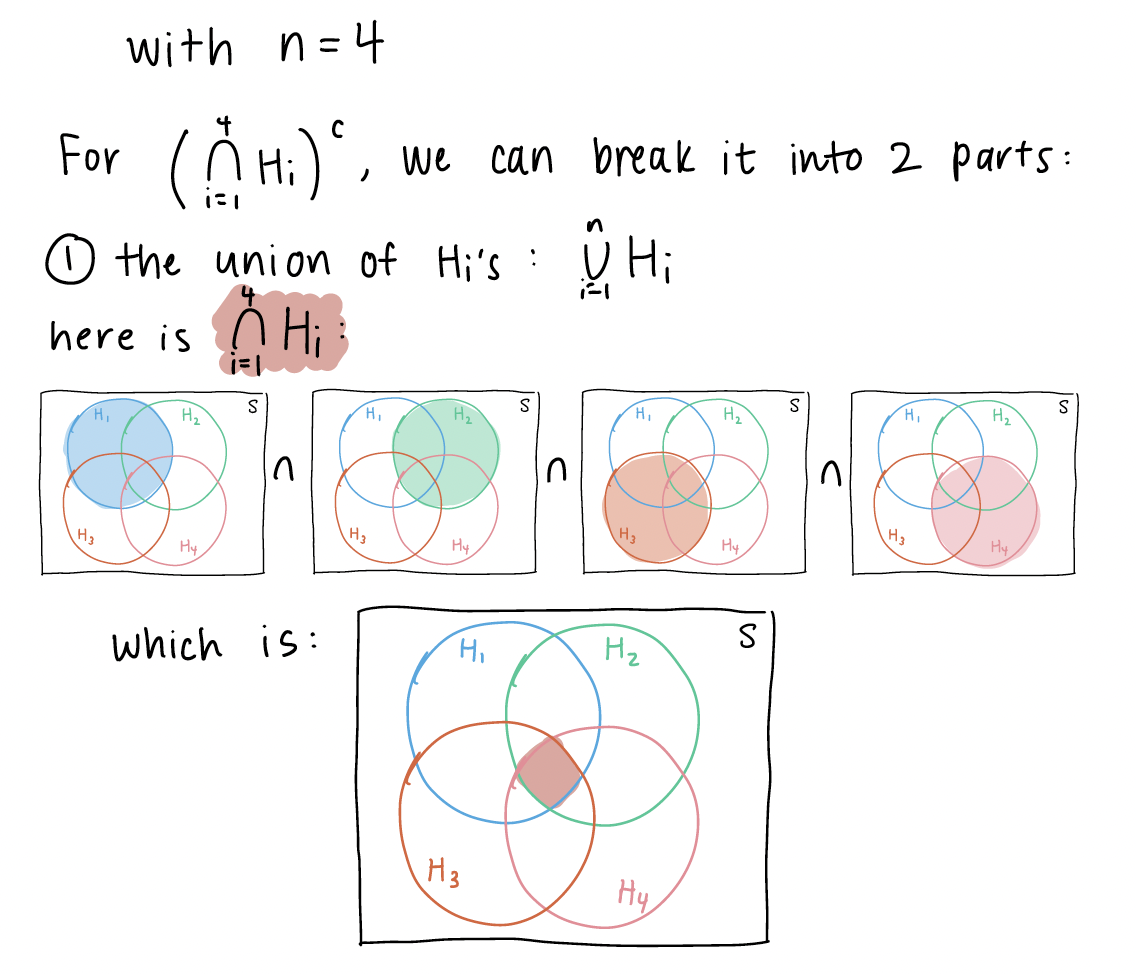 with n = 4
For (⋂_{i=1}^{4} Hi)^c, we can break it into 2 parts:
① the union of Hi's : ⋃_{i=1}^{n} Hi
here is ⋂_{i=1}^{4} Hi:
H₁ H₂ S
H₃ H₄
∩
H₁ H₂ S
H₃ H₄
∩
H₁ H₂ S
H₃ H₄
∩
H₁ H₂ S
H₃ H₄
which is:
H₁ H₂ S
H₃ H₄